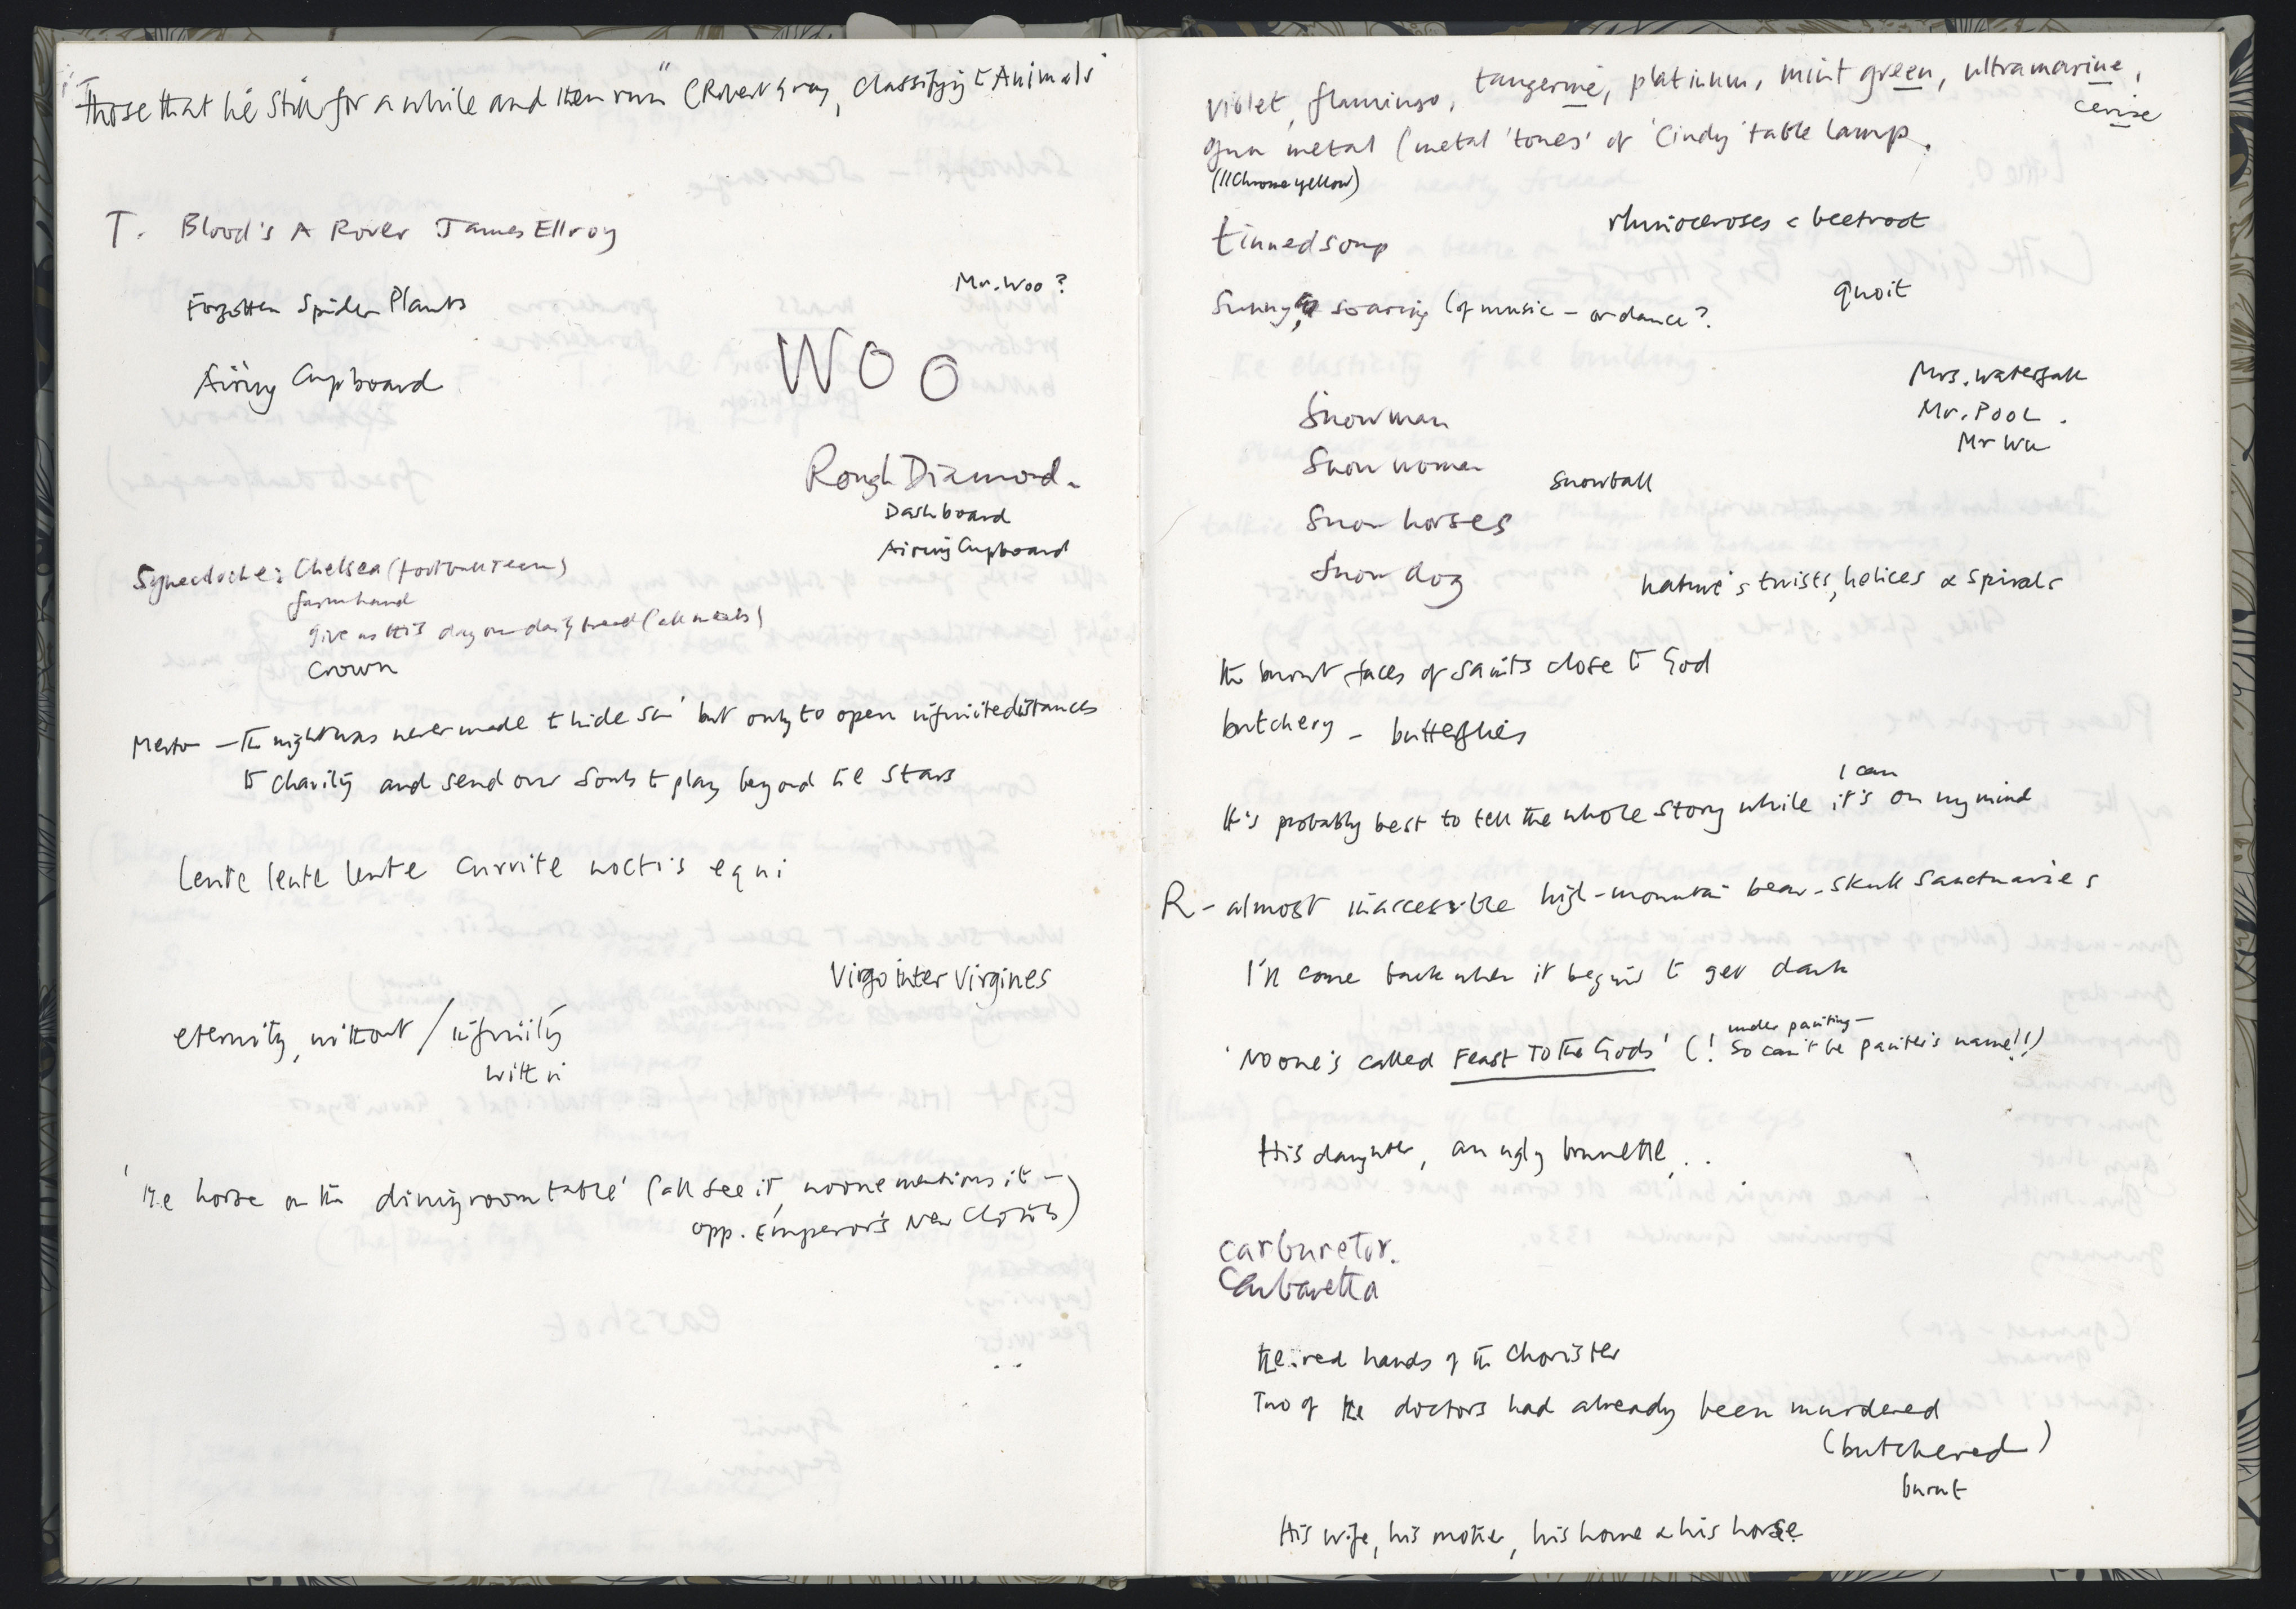 "Those that lie still for a while and then run" (Robert Gray, Classifying t Animals
T. Blood's A Rover James Ellroy
Forgotten Spider Plants
Mr. Woo?
Airing Cupboard
WOO
Rough Diamond.
Dashboard
Airing Cupboard
Synecdoche: Chelsea (football team)
farmhand
give us this day our daily bread (all meals)
Crown
— The night was never made t hide sin but only to open infinite distances
to charity and send our souls t play beyond the stars
Lente lente lente currite noctis equi
Virgo inter Virgines
eternity, without / infinity
within
'The horse on the dining room table' (all see it, no one mentions it —
opp. Emperor's New Clothes)
violet, flamingo, tangerine, platinum, mint green, ultramarine,
cerise
gun metal (metal 'tones' of 'Cindy' table lamp.
(Chrome yellow)
tinned soup
rhinoceroses & beetroot
Sunny, soaring (of music — or dance?
quoit
Mrs. Waterfall
Mr. Pool.
Mr Wu
Snowman
Snow women
Snowball
Snow horses
Snow dog
nature's twists, helices & spirals
the burnt faces of saints close to God
butchery - butterflies
I can
It's probably best to tell the whole story while it's on my mind
R - almost inaccessible high-mountain bear-skull sanctuaries
I'll come back when it begins to get dark
under painting —
'No one's called Feast To The Gods' (! So can't be painter's name!!)
His daughter, an ugly brunette...
carburetor.
Carbaretta
The red hands of the chorister
Two of the doctors had already been murdered
(butchered)
burnt
His wife, his mother, his home & his horse.